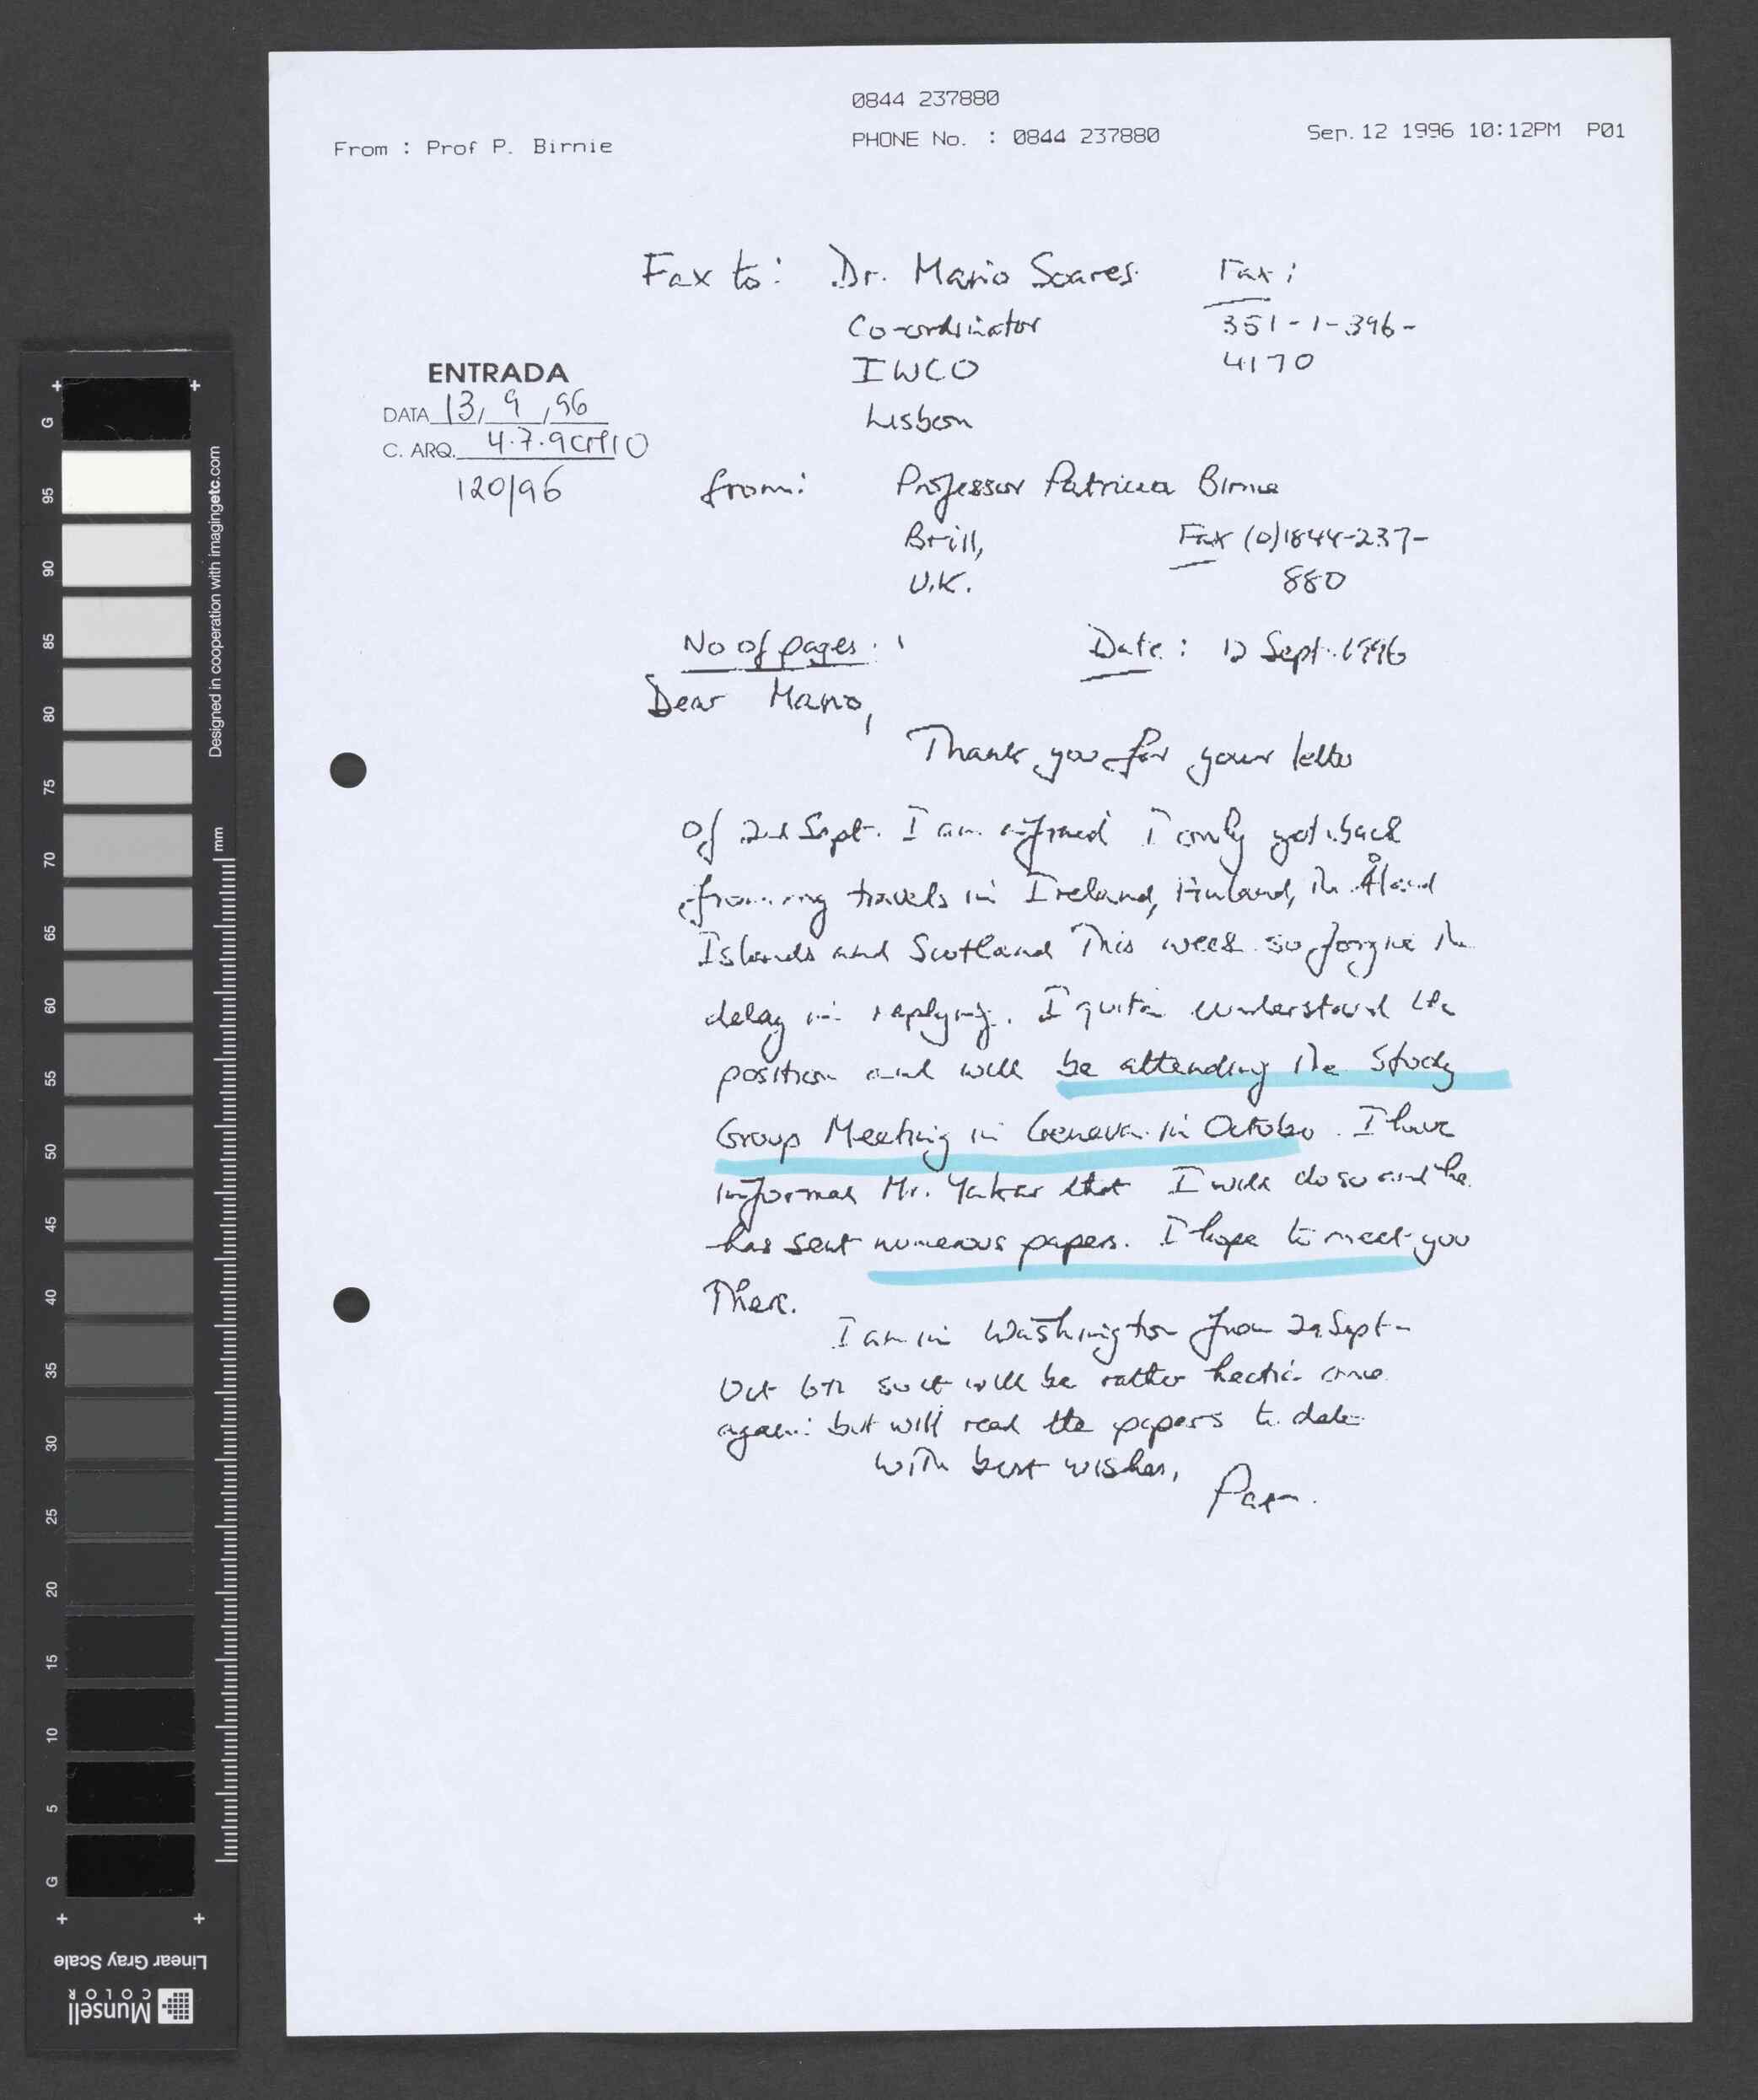 0844 237880
From : Prof P. Birnie
PHONE No. : 0844 237880
Sep.12 1996 10:12PM P01
Fax to: Dr. Mario Soares
Fax:
Co-ordinator
351-1-396-
IWCO
4170
Lisbon
ENTRADA
DATA 13, 9, 96
C. ARQ. 4.7.9
120/96
from: Professor Patricia Birnie
Brill,
Fax (0)1844-237-
U.K.
880
No of pages: 1
Date: 12 Sept. 1996
Dear Mario,
Thank you for your letter
of 2nd Sept. I am afraid I only got back
from my travels in Ireland, Finland, the Åland
Islands and Scotland This week so forgive the
delay in replying. I quite understand the
position and will be attending the Study
Group Meeting in Geneva in October. I have
informed Mr. Yakar that I will do so and he
has sent numerous papers. I hope to meet you
There.
I am in Washington from Sept -
Oct 6th so it will be rather hectic once
again: but will read the papers to date
With best wishes,
G 95 90 85 80 75 70 65 60 55 50 45 40 35 30 25 20 15 10 5 G
Designed in cooperation with imagingetc.com
mm
Linear Gray Scale
Munsell
COLOR